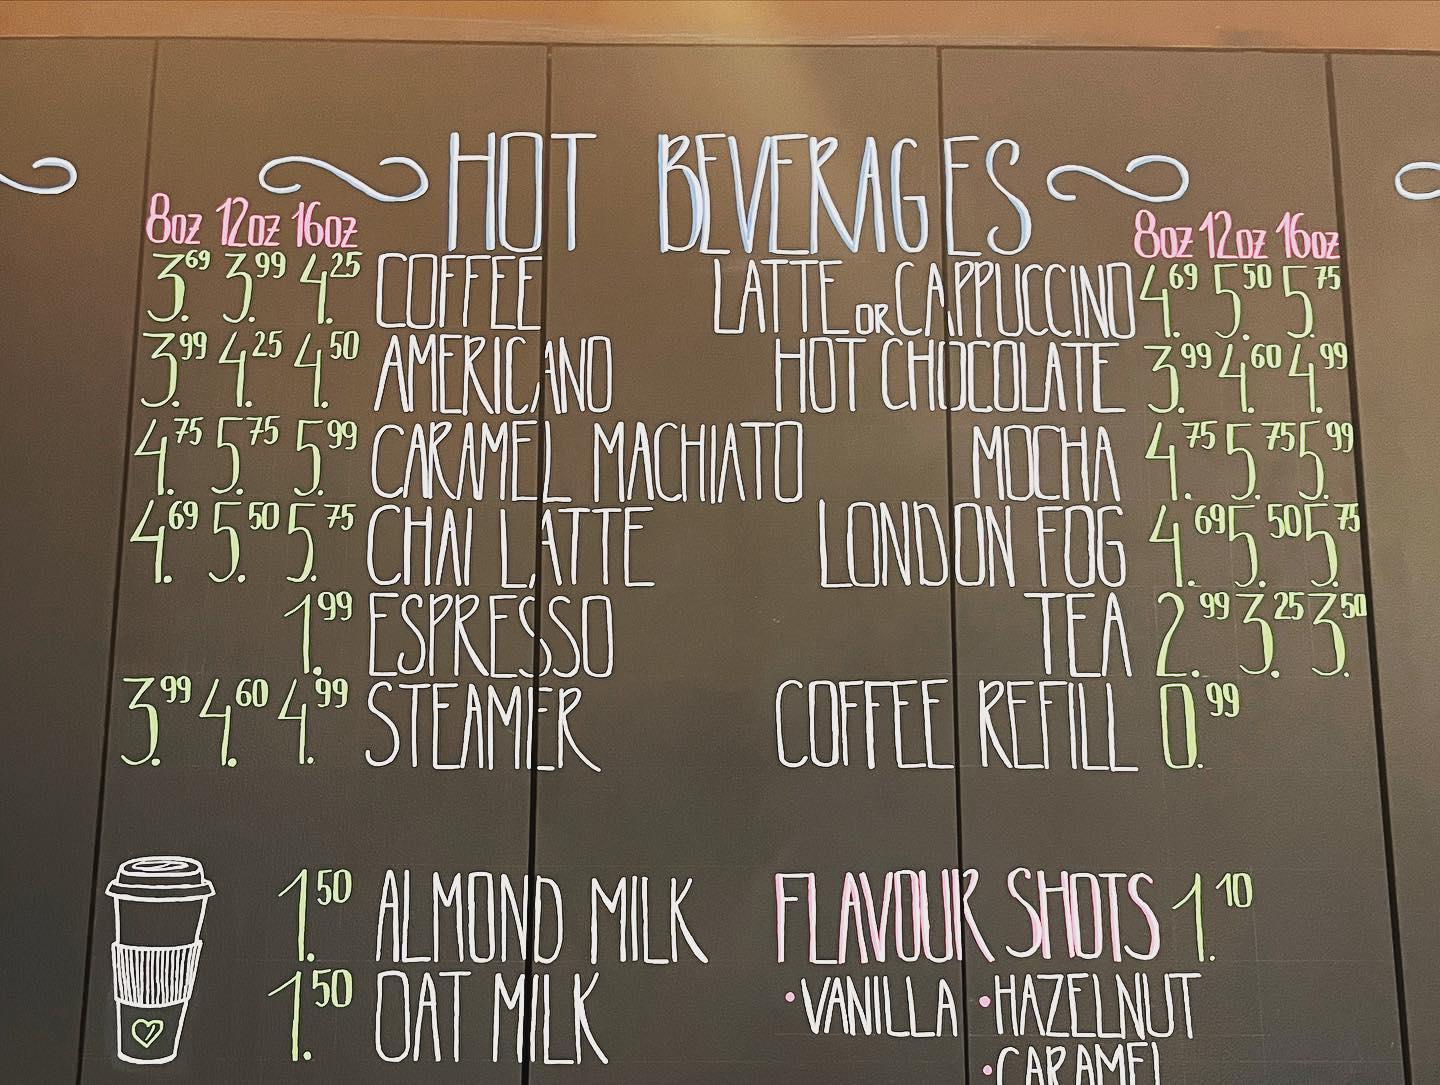 HOT BEVERAGES
8oz 12oz 16oz
3.69 3.99 4.25 COFFEE
3.99 4.25 4.50 AMERICANO
4.75 5.75 5.99 CARAMEL MACHIATO
4.69 5.50 5.75 CHAI LATTE
1.99 ESPRESSO
3.99 4.60 4.99 STEAMER
8oz 12oz 16oz
LATTE OR CAPPUCCINO 4.69 5.50 5.75
HOT CHOCOLATE 3.99 4.60 4.99
MOCHA 4.75 5.75 5.99
LONDON FOG 4.69 5.50 5.75
TEA 2.99 3.25 3.50
COFFEE REFILL 0.99
1.50 ALMOND MILK
1.50 OAT MILK
FLAVOUR SHOTS 1.10
•VANILLA •HAZELNUT
•CARAMEL